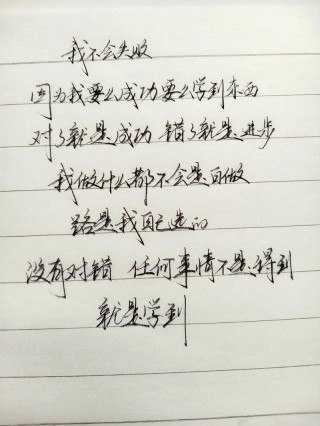 我不会失败
因为我要么成功要么学到东西
对了就是成功 错了就是进步
我做什么都不会是白做
路是我自己选的
没有对错 任何事情不是得到
就是学到